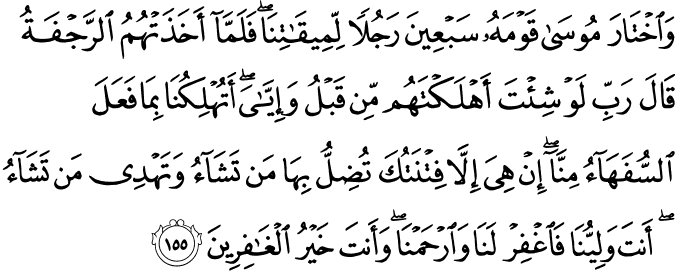 وَٱخۡتَارَ مُوسَىٰ قَوۡمَهُۥ سَبۡعِينَ رَجُلٗا لِّمِيقَٰتِنَاۖ فَلَمَّآ أَخَذَتۡهُمُ ٱلرَّجۡفَةُ
قَالَ رَبِّ لَوۡ شِئۡتَ أَهۡلَكۡتَهُم مِّن قَبۡلُ وَإِيَّٰيَۖ أَتُهۡلِكُنَا بِمَا فَعَلَ
ٱلسُّفَهَآءُ مِنَّآۖ إِنۡ هِيَ إِلَّا فِتۡنَتُكَ تُضِلُّ بِهَا مَن تَشَآءُ وَتَهۡدِي مَن تَشَآءُ
ۖ أَنتَ وَلِيُّنَا فَٱغۡفِرۡ لَنَا وَٱرۡحَمۡنَاۖ وَأَنتَ خَيۡرُ ٱلۡغَٰفِرِينَ ١٥٥